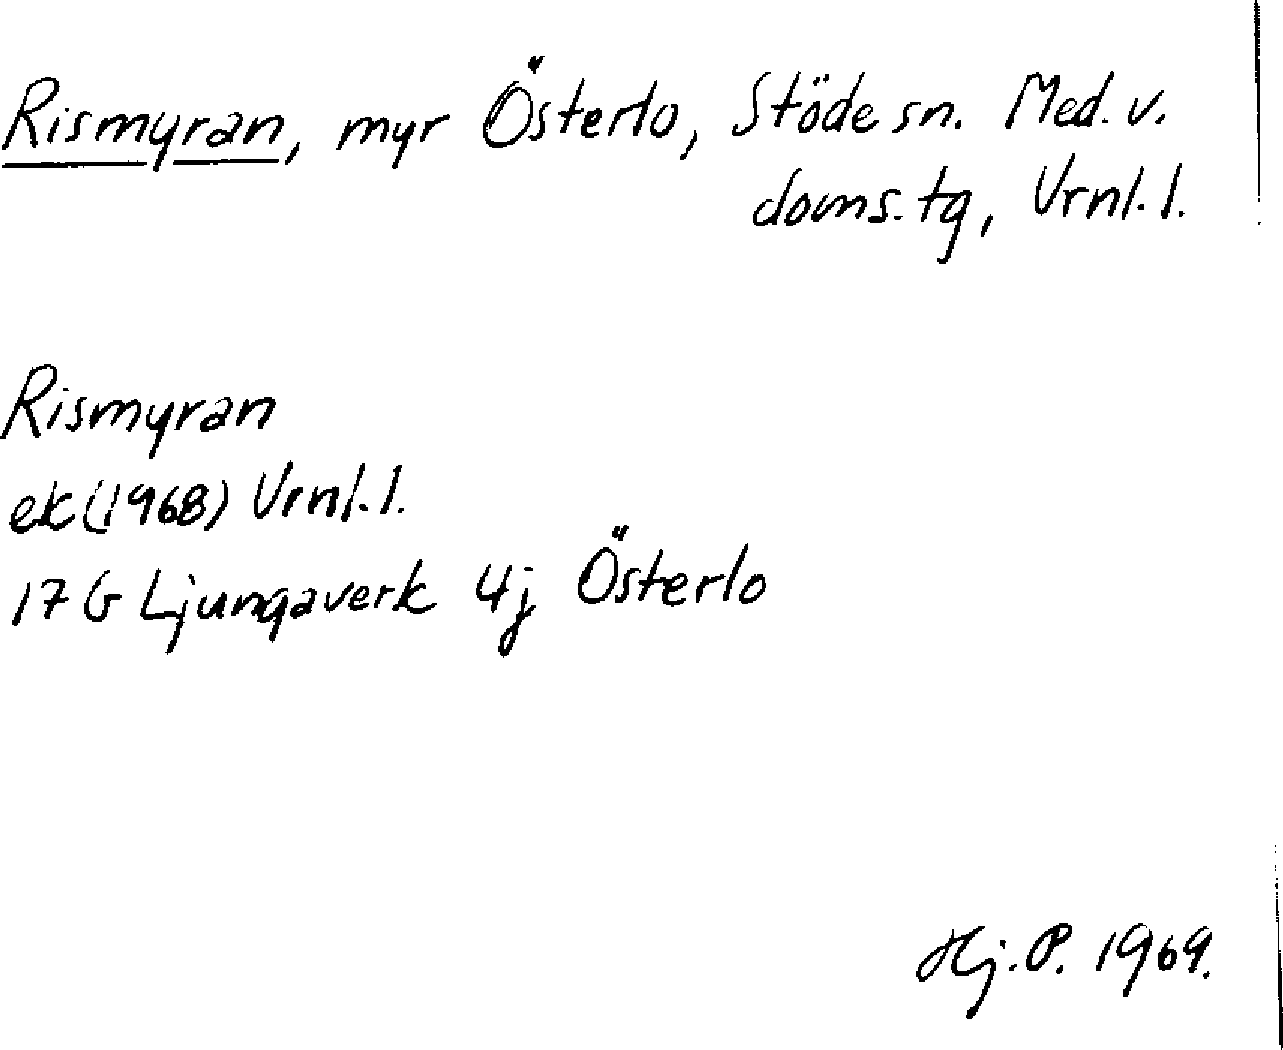 Rismyran, myr Österlo, Stöde sn. Med. v.
doms. tg, Vrnl. l.
Rismyran
ek (1968) Vrnl. l.
17 G Ljungaverk 4j Österlo
Hj. P. 1969.